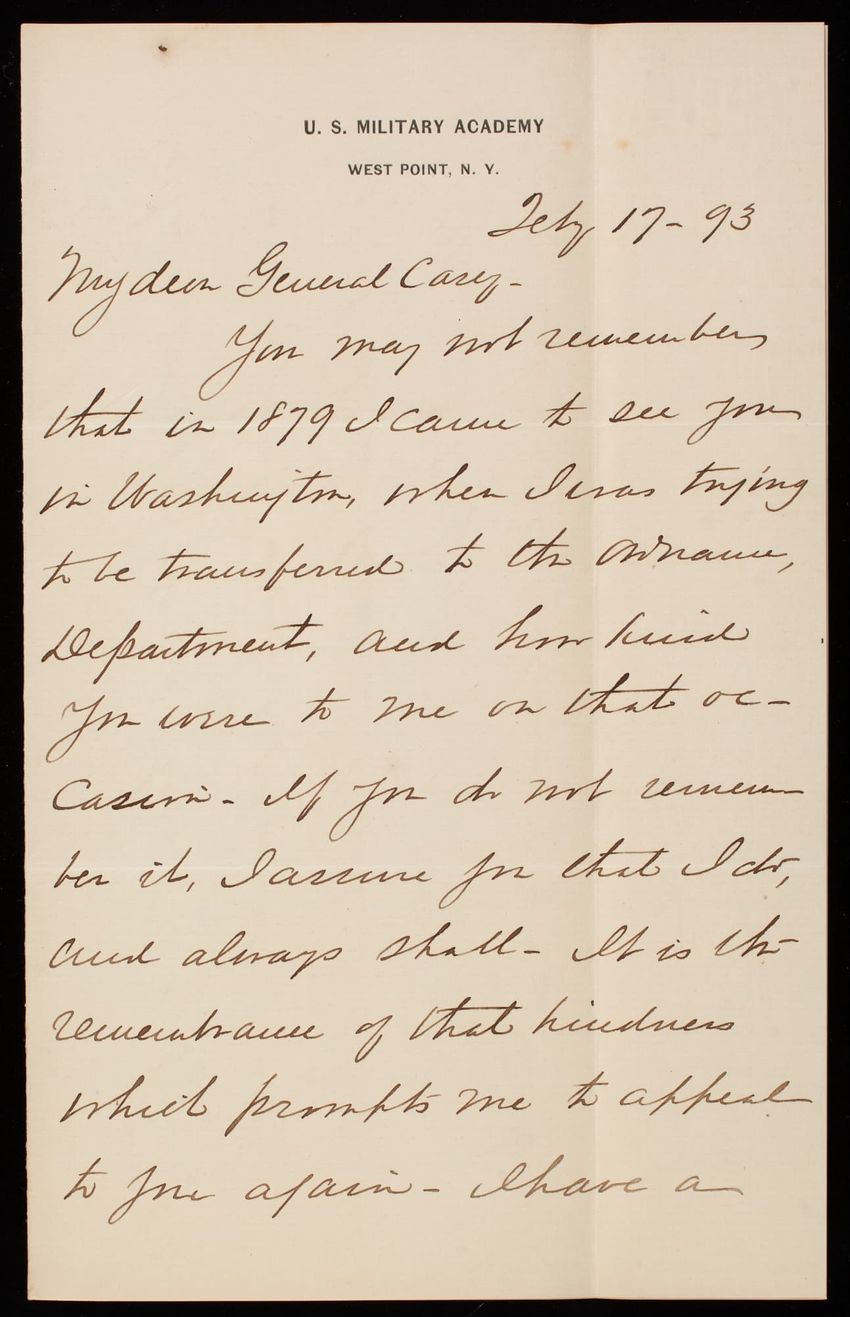 U. S. MILITARY ACADEMY
WEST POINT, N. Y.
Feby 17 - 93
My dear General Casey -
You may not remember
that in 1879 I came to see you
in Washington, when I was trying
to be transferred to the Ordnance,
Department, and how kind
you were to me on that oc-
casion - If you do not remem-
ber it, I assure you that I do,
and always shall - It is the
remembrance of that kindness
which prompts me to appeal
to you again - I have a